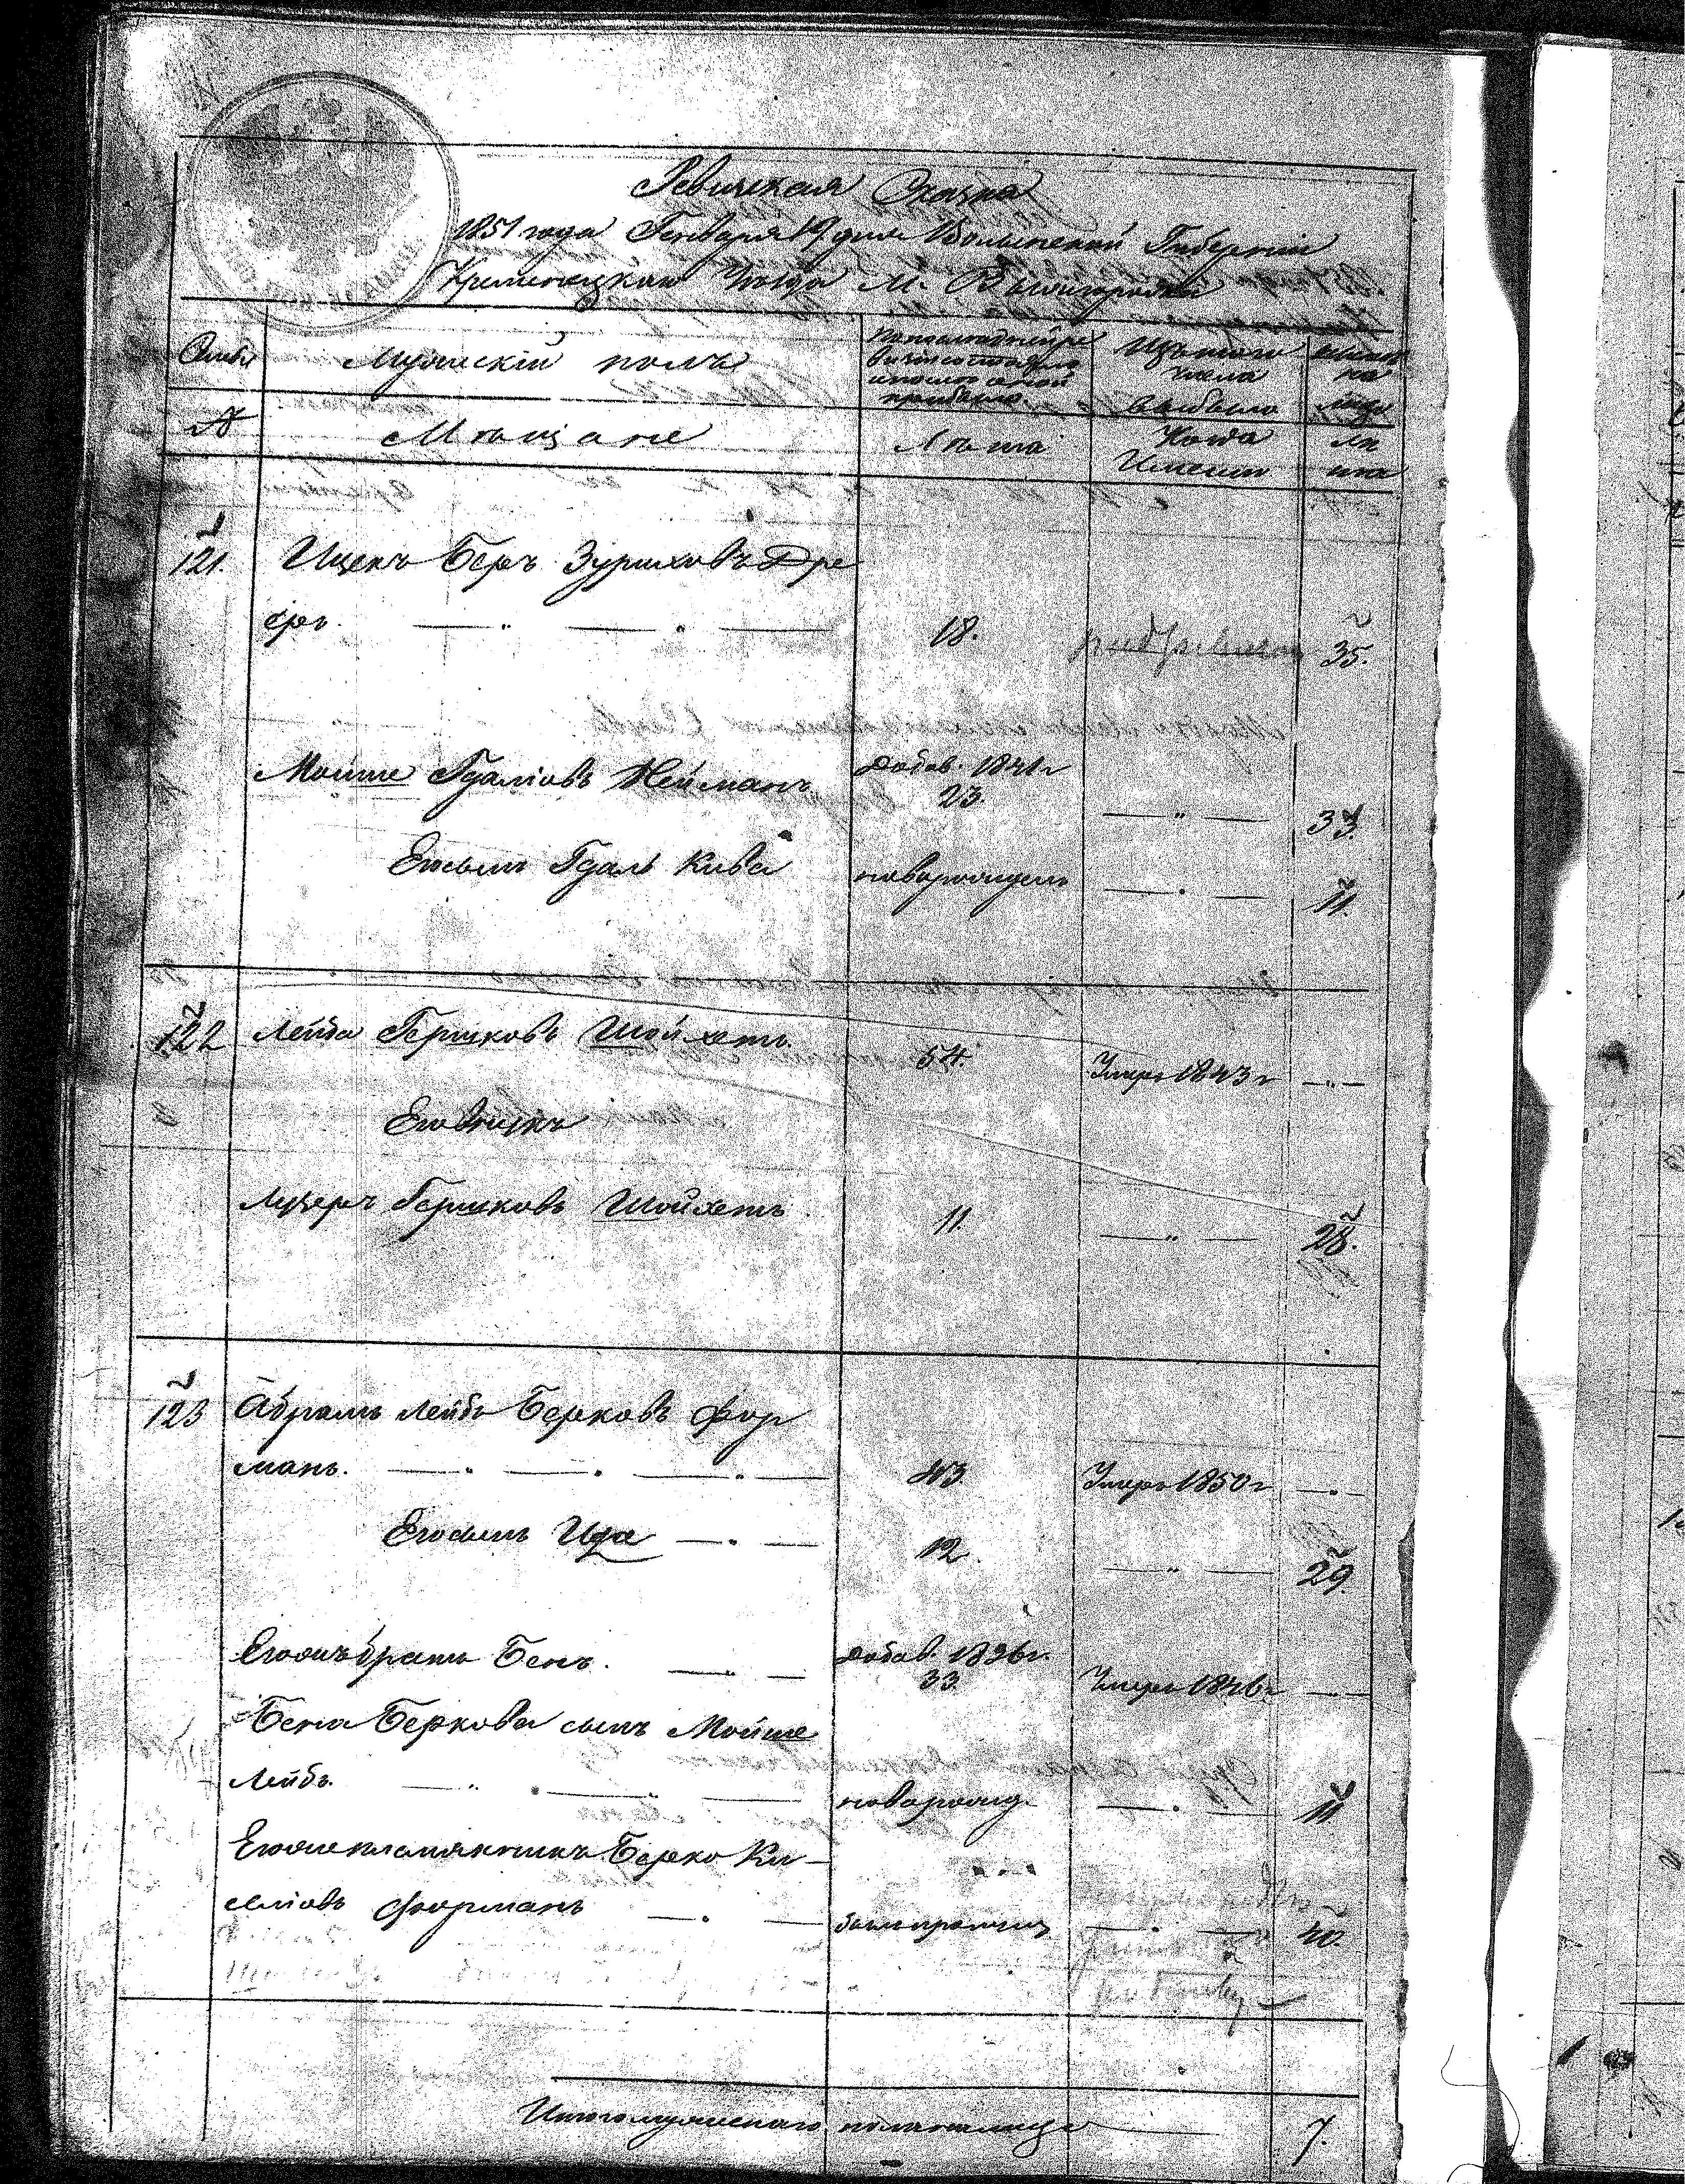 Ревизская Сказка
1851 года Генваря 19 дня Волынской Губернии
Кременецкаго Уезда М. Вышгородка
Семьи
Мужескій полъ
По последней ре
визіи состояло
и после оной
прибыло.
Изъ того
числа
выбыло
ныне на
лицо
№
Мѣщане
Лѣта
Когда
Именно
Лѣ
та
121. Ицекъ Беръ Зурыховъ Дре
еръ. — " — " — 18. 35.
Мойше Гдаліовъ Нейманъ добав. 1841 г
23. — " — 33.
Его сынъ Гдаль Кива новорожденъ — " — 11.
122 Лейба Гершковъ Шойхетъ. 54. Умеръ 1843 г — " —
Его внукъ
Лузеръ Гершковъ Шойхетъ 11. — " — 28.
123 Абрамъ Лейбъ Берковъ Фор
манъ. — " — " — " — 43 Умеръ 1850 г — " —
Его сынъ Ица — " — 12. — " — 29.
Его же братъ Бенъ. — " — добав. 1836 г.
33. Умеръ 1846 г — " —
Бена Беркова сынъ Мойше
Лейбъ. — " — " — новорожд. — " — 11
Его же племянникъ Берко Ки-
селіовъ Форманъ — " — былъ пропущ — " — 40.
Итого мужескаго пола на лице — 7.